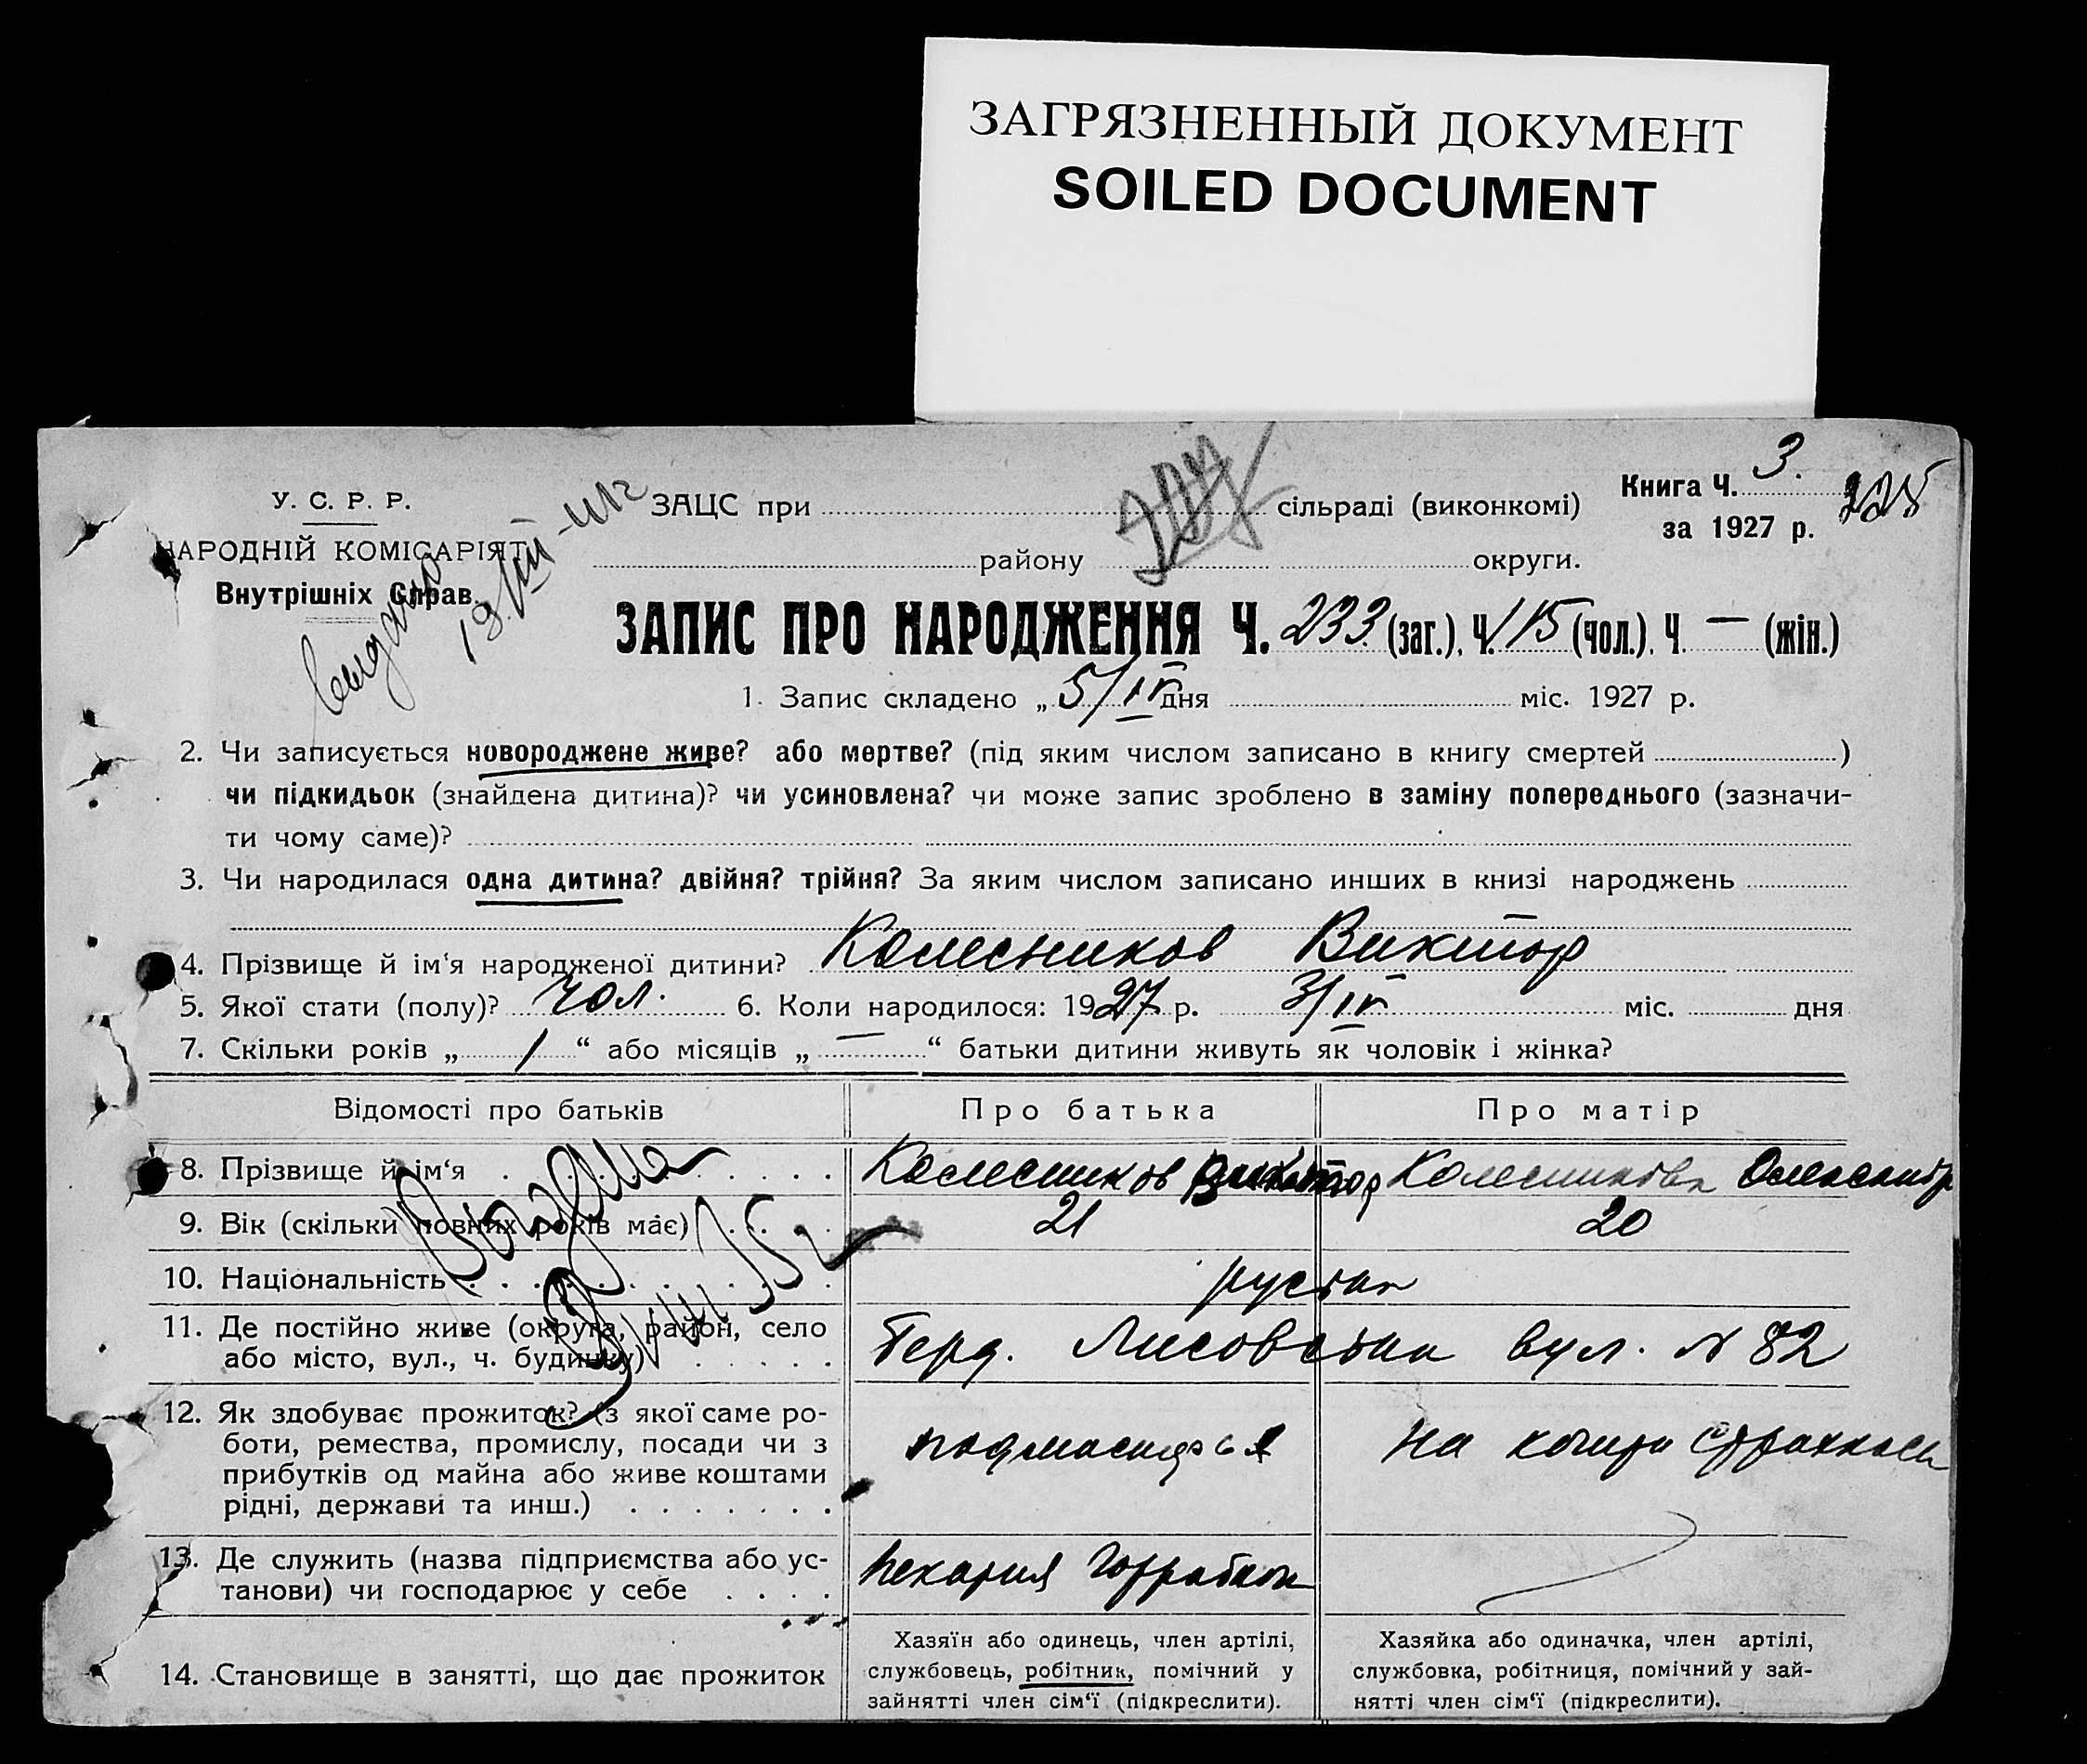 ЗАГРЯЗНЕННЫЙ ДОКУМЕНТ
SOILED DOCUMENT
У. С. Р. Р.
НАРОДНІЙ КОМІСАРІЯТ
Внутрішніх Справ.
ЗАЦС при сільраді (виконкомі)
району округи.
Книга Ч. 3.
за 1927 р.
ЗАПИС ПРО НАРОДЖЕННЯ Ч. 233 (заг.), Ч. 115 (чол.), Ч. — (жін.)
1. Запис складено „ 5/IV дня міс. 1927 р.
2. Чи записується новороджене живе? або мертве? (під яким числом записано в книгу смертей )
чи підкидьок (знайдена дитина)? чи усиновлена? чи може запис зроблено в заміну попереднього (зазначи-
ти чому саме)?
3. Чи народилася одна дитина? двійня? трійня? За яким числом записано инших в книзі народжень
4. Прізвище й ім‘я народженої дитини? Колесников Виктор
5. Якої стати (полу)? чол. 6. Коли народилося: 1927 р. 3/IV міс. дня
7. Скільки років „ 1 “ або місяців „ — “ батьки дитини живуть як чоловік і жінка?
Відомості про батьків Про батька Про матір
8. Прізвище й ім‘я Колесников Виктор Колесникова
9. Вік (скільки повних років має) 21 20
10. Національність
11. Де постійно живе (округа, район, село
або місто, вул., ч. будинку) вул. № 82
12. Як здобуває прожиток? (з якої саме ро-
боти, ремества, промислу, посади чи з
прибутків од майна або живе коштами
рідні, держави та инш.)
На
13. Де служить (назва підприємства або ус-
танови) чи господарює у себе
Пекария
14. Становище в занятті, що дає прожиток
Хазяїн або одинець, член артілі,
службовець, робітник, помічний у
зайнятті член сім‘ї (підкреслити).
Хазяйка або одиначка, член артілі,
службовка, робітниця, помічний у зай-
нятті член сім‘ї (підкреслити).